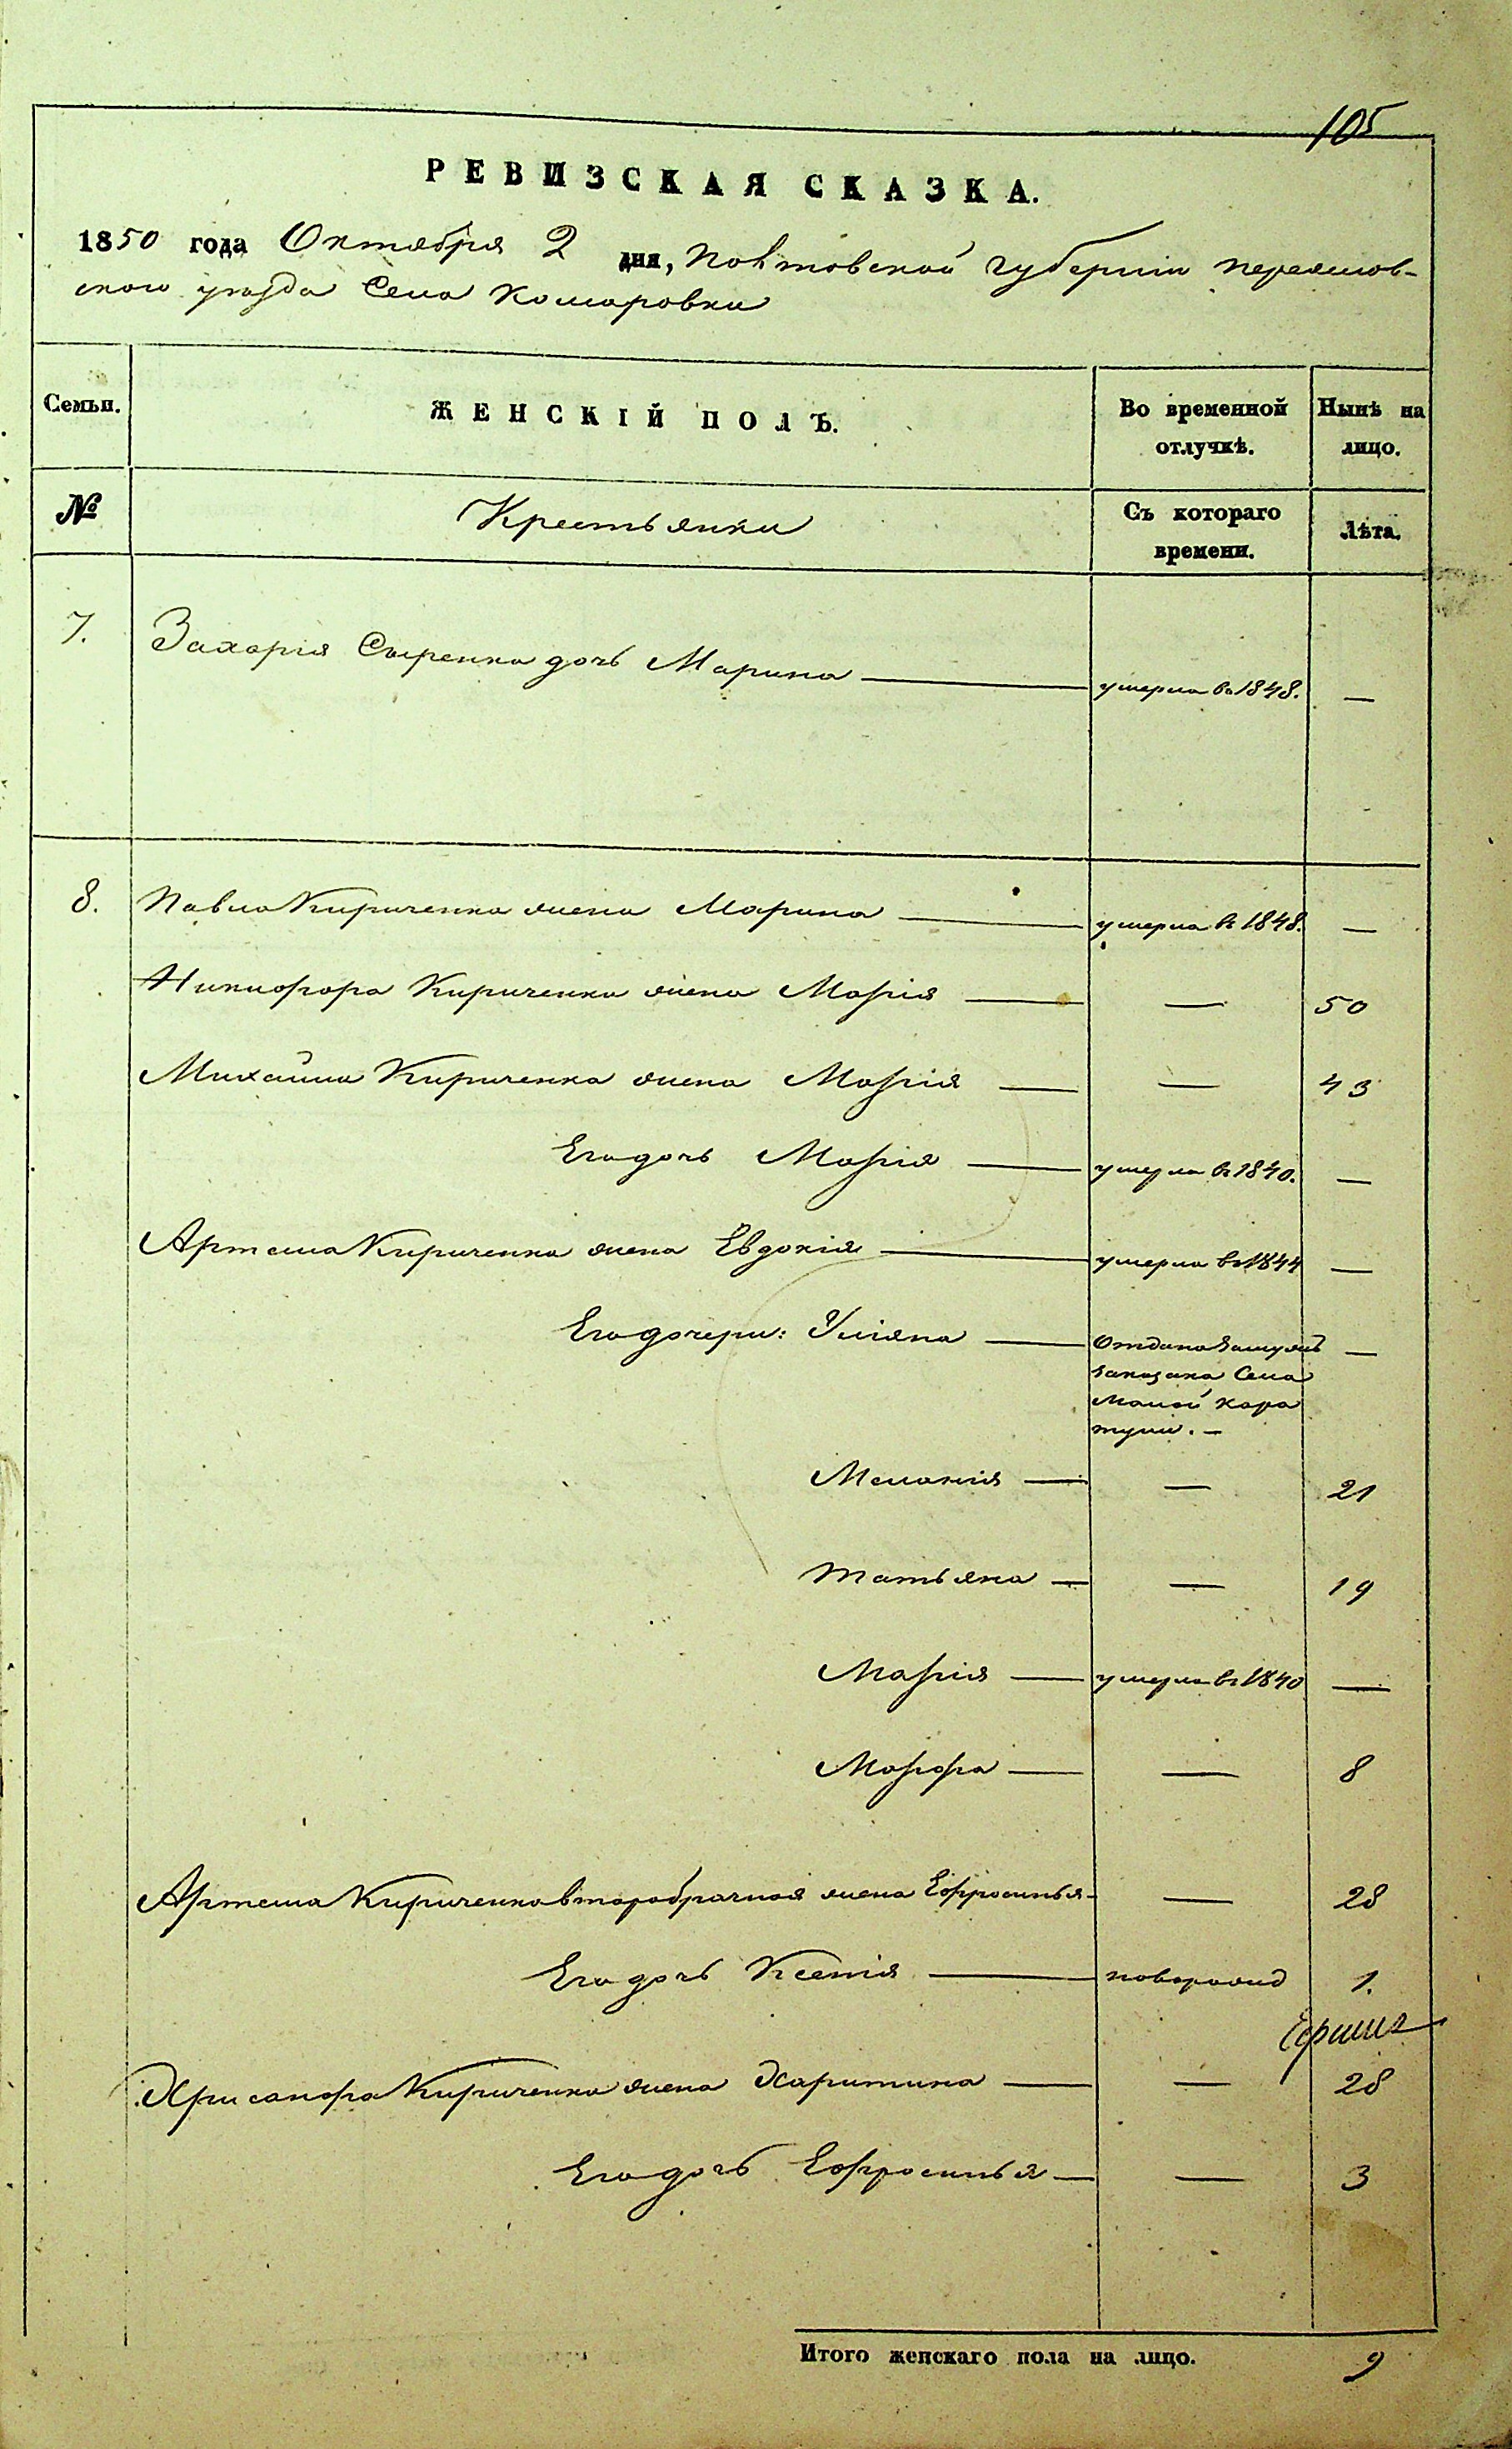 105
РЕВИЗСКАЯ СКАЗКА.
1850 года Октября 2 дня, Полтавской губернии Переяслов-
ского уезда Села Комаровки
Семьи. ЖЕНСКІЙ ПОЛЪ. Во временной отлучкѣ. Нынѣ на лицо.
№ Крестьянки Съ котораго времени. Лѣта.
7. Захарія Сыренка дочь Марина — умерла въ 1848. —
8. Павла Кириченка жена Марина — умерла въ 1848. —
Никифора Кириченка жена Марія — — 50
Михайла Кириченка жена Марія — — 43
Его дочь Марія — умерла въ 1840. —
Артема Кириченка жена Евдокія — умерла въ 1844 —
Его дочери: Уліяна — Отдана Замужъ —
за казака Села
Малой Кара
тули. —
Меланія — — 21
Татьяна — — 19
Марія — умерла въ 1840 —
Марфа — — 8
Артема Кириченка второбрачная жена Ефросинья - — 28
Его дочь Ксенія — новорожд 1.
Хрисанфа Кириченка жена Харитина — — 28
Его дочь Ефросинья — — 3
Итого женскаго пола на лицо. 9